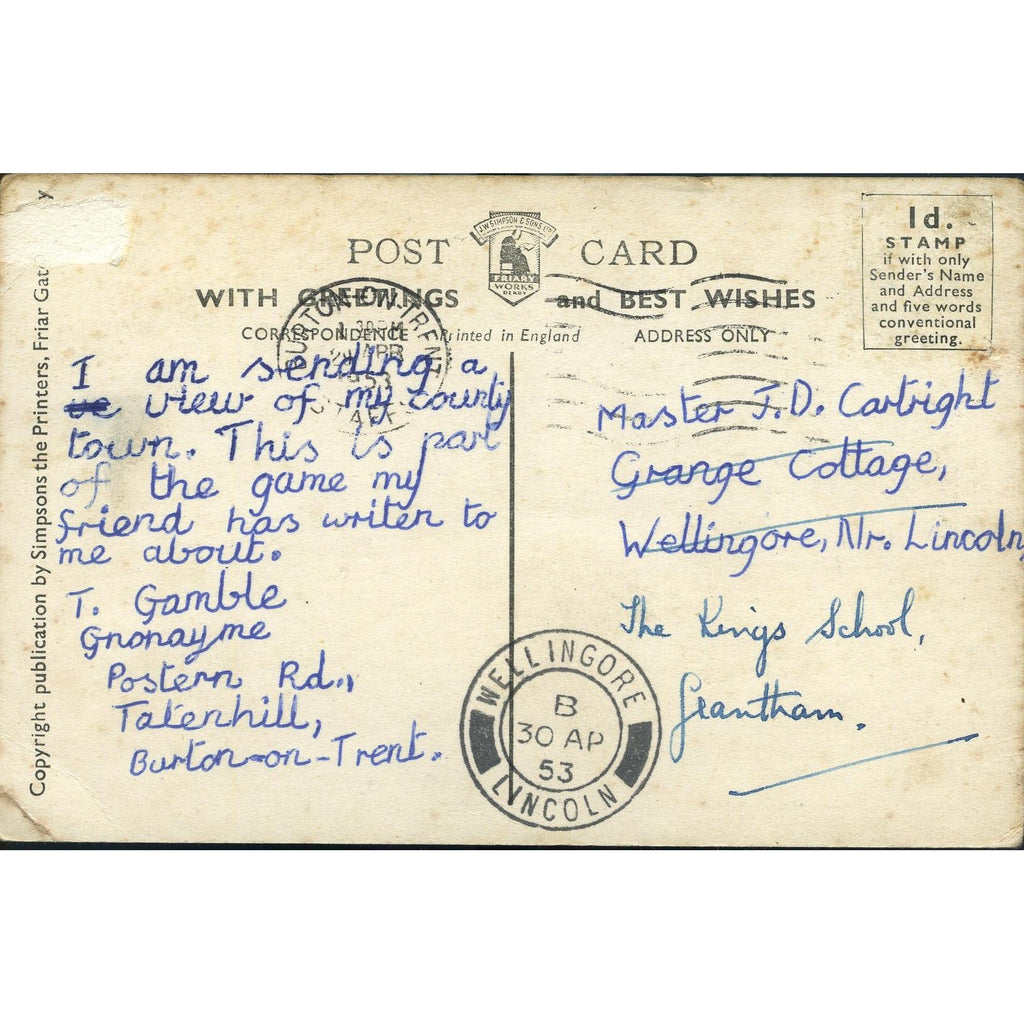 POST CARD
J.W. SIMPSON & SONS LTD
FRIARY
WORKS
DERBY
WITH GREETINGS and BEST WISHES
CORRESPONDENCE Printed in England ADDRESS ONLY
1d.
STAMP
if with only
Sender's Name
and Address
and five words
conventional
greeting.
BURTON-ON-TRENT
APR
1953
STAFFS
I am sending a
view of my county
town. This is part
of the game my
friend has writen to
me about.
T. Gamble
Gnonayme
Postern Rd.,
Tatenhill,
Burton-on-Trent.
Master J.D. Cartright
Grange Cottage,
Wellingore, Nr. Lincoln,
The Kings School,
Grantham.
WELLINGORE
B
30 AP
53
LINCOLN
Copyright publication by Simpsons the Printers, Friar Gat y